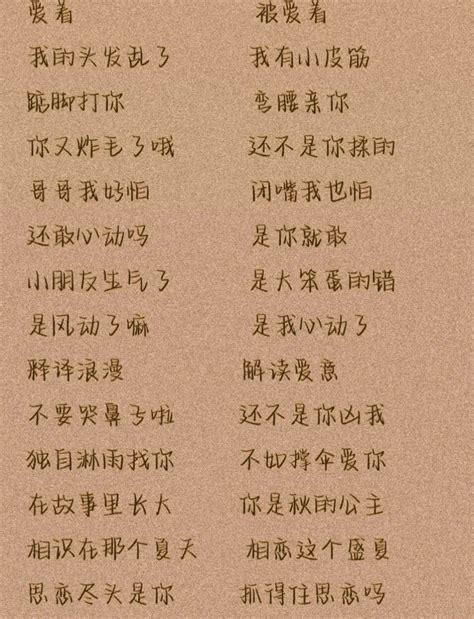 爱着 被爱着
我的头发乱了 我有小皮筋
踮脚打你 弯腰亲你
你又炸毛了哦 还不是你揉的
哥哥我好怕 闭嘴我也怕
还敢心动吗 是你就敢
小朋友生气了 是大笨蛋的错
是风动了嘛 是我心动了
释译浪漫 解读爱意
不要哭鼻子啦 还不是你凶我
独自淋雨找你 不如撑伞爱你
在故事里长大 你是秋的公主
相识在那个夏天 相恋这个盛夏
思恋尽头是你 抓得住思恋吗